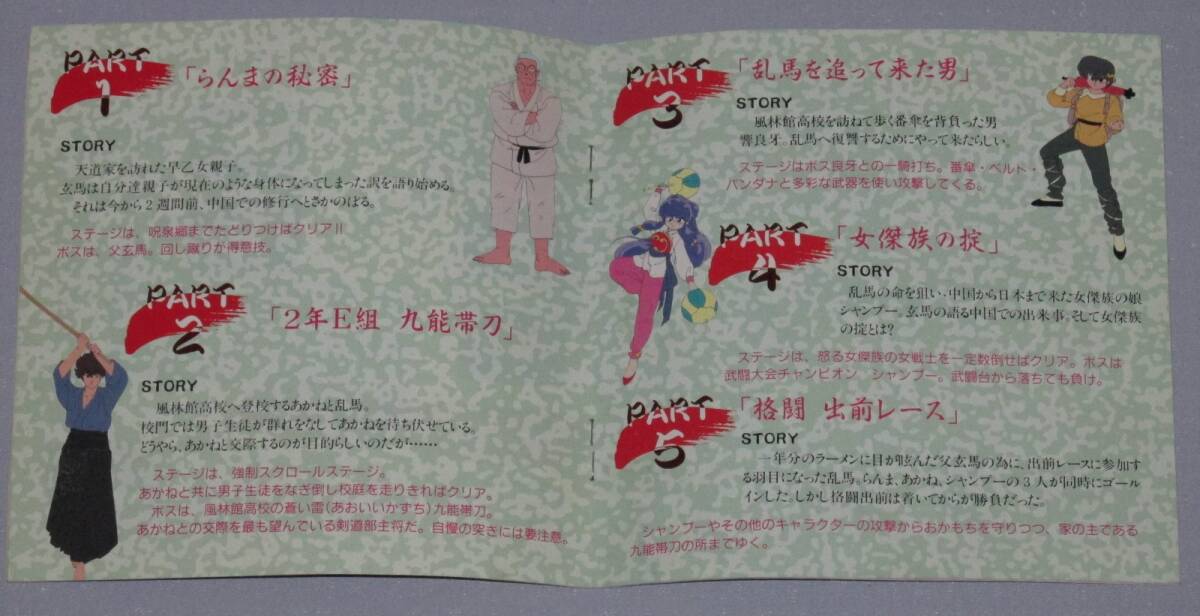 PART
1
「らんまの秘密」
STORY
天道家を訪れた早乙女親子。
玄馬は自分達親子が現在のような身体になってしまった訳を語り始める。
それは今から2週間前、中国での修行へとさかのぼる。
ステージは、呪泉郷までたどりつけばクリア!!
ボスは、父玄馬。回し蹴りが得意技。
PART
2
「2年E組 九能帯刀」
STORY
風林館高校へ登校するあかねと乱馬。
校門では男子生徒が群れをなしてあかねを待ち伏せている。
どうやら、あかねと交際するのが目的らしいのだが……
ステージは、強制スクロールステージ。
あかねと共に男子生徒をなぎ倒し校庭を走りきればクリア。
ボスは、風林館高校の蒼い雷(あおいいかずち)九能帯刀。
あかねとの交際を最も望んでいる剣道部主将だ。自慢の突きには要注意。
PART
3
「乱馬を追って来た男」
STORY
風林館高校を訪ねて歩く番傘を背負った男
響良牙。乱馬へ復讐するためにやって来たらしい。
ステージはボス良牙との一騎打ち。番傘・ベルト・
バンダナと多彩な武器を使い攻撃してくる。
PART
4
「女傑族の掟」
STORY
乱馬の命を狙い、中国から日本まで来た女傑族の娘
シャンプー。玄馬の語る中国での出来事。そして女傑族
の掟とは?
ステージは、怒る女傑族の女戦士を一定数倒せばクリア。ボスは
武闘大会チャンピオン シャンプー。武闘台から落ちても負け。
PART
5
「格闘 出前レース」
STORY
一年分のラーメンに目が眩んだ父玄馬の為に、出前レースに参加す
る羽目になった乱馬。らんま、あかね、シャンプーの3人が同時にゴール
インした。しかし格闘出前は着いてからが勝負だった。
シャンプーやその他のキャラクターの攻撃からおかもちを守りつつ、家の主である
九能帯刀の所までゆく。